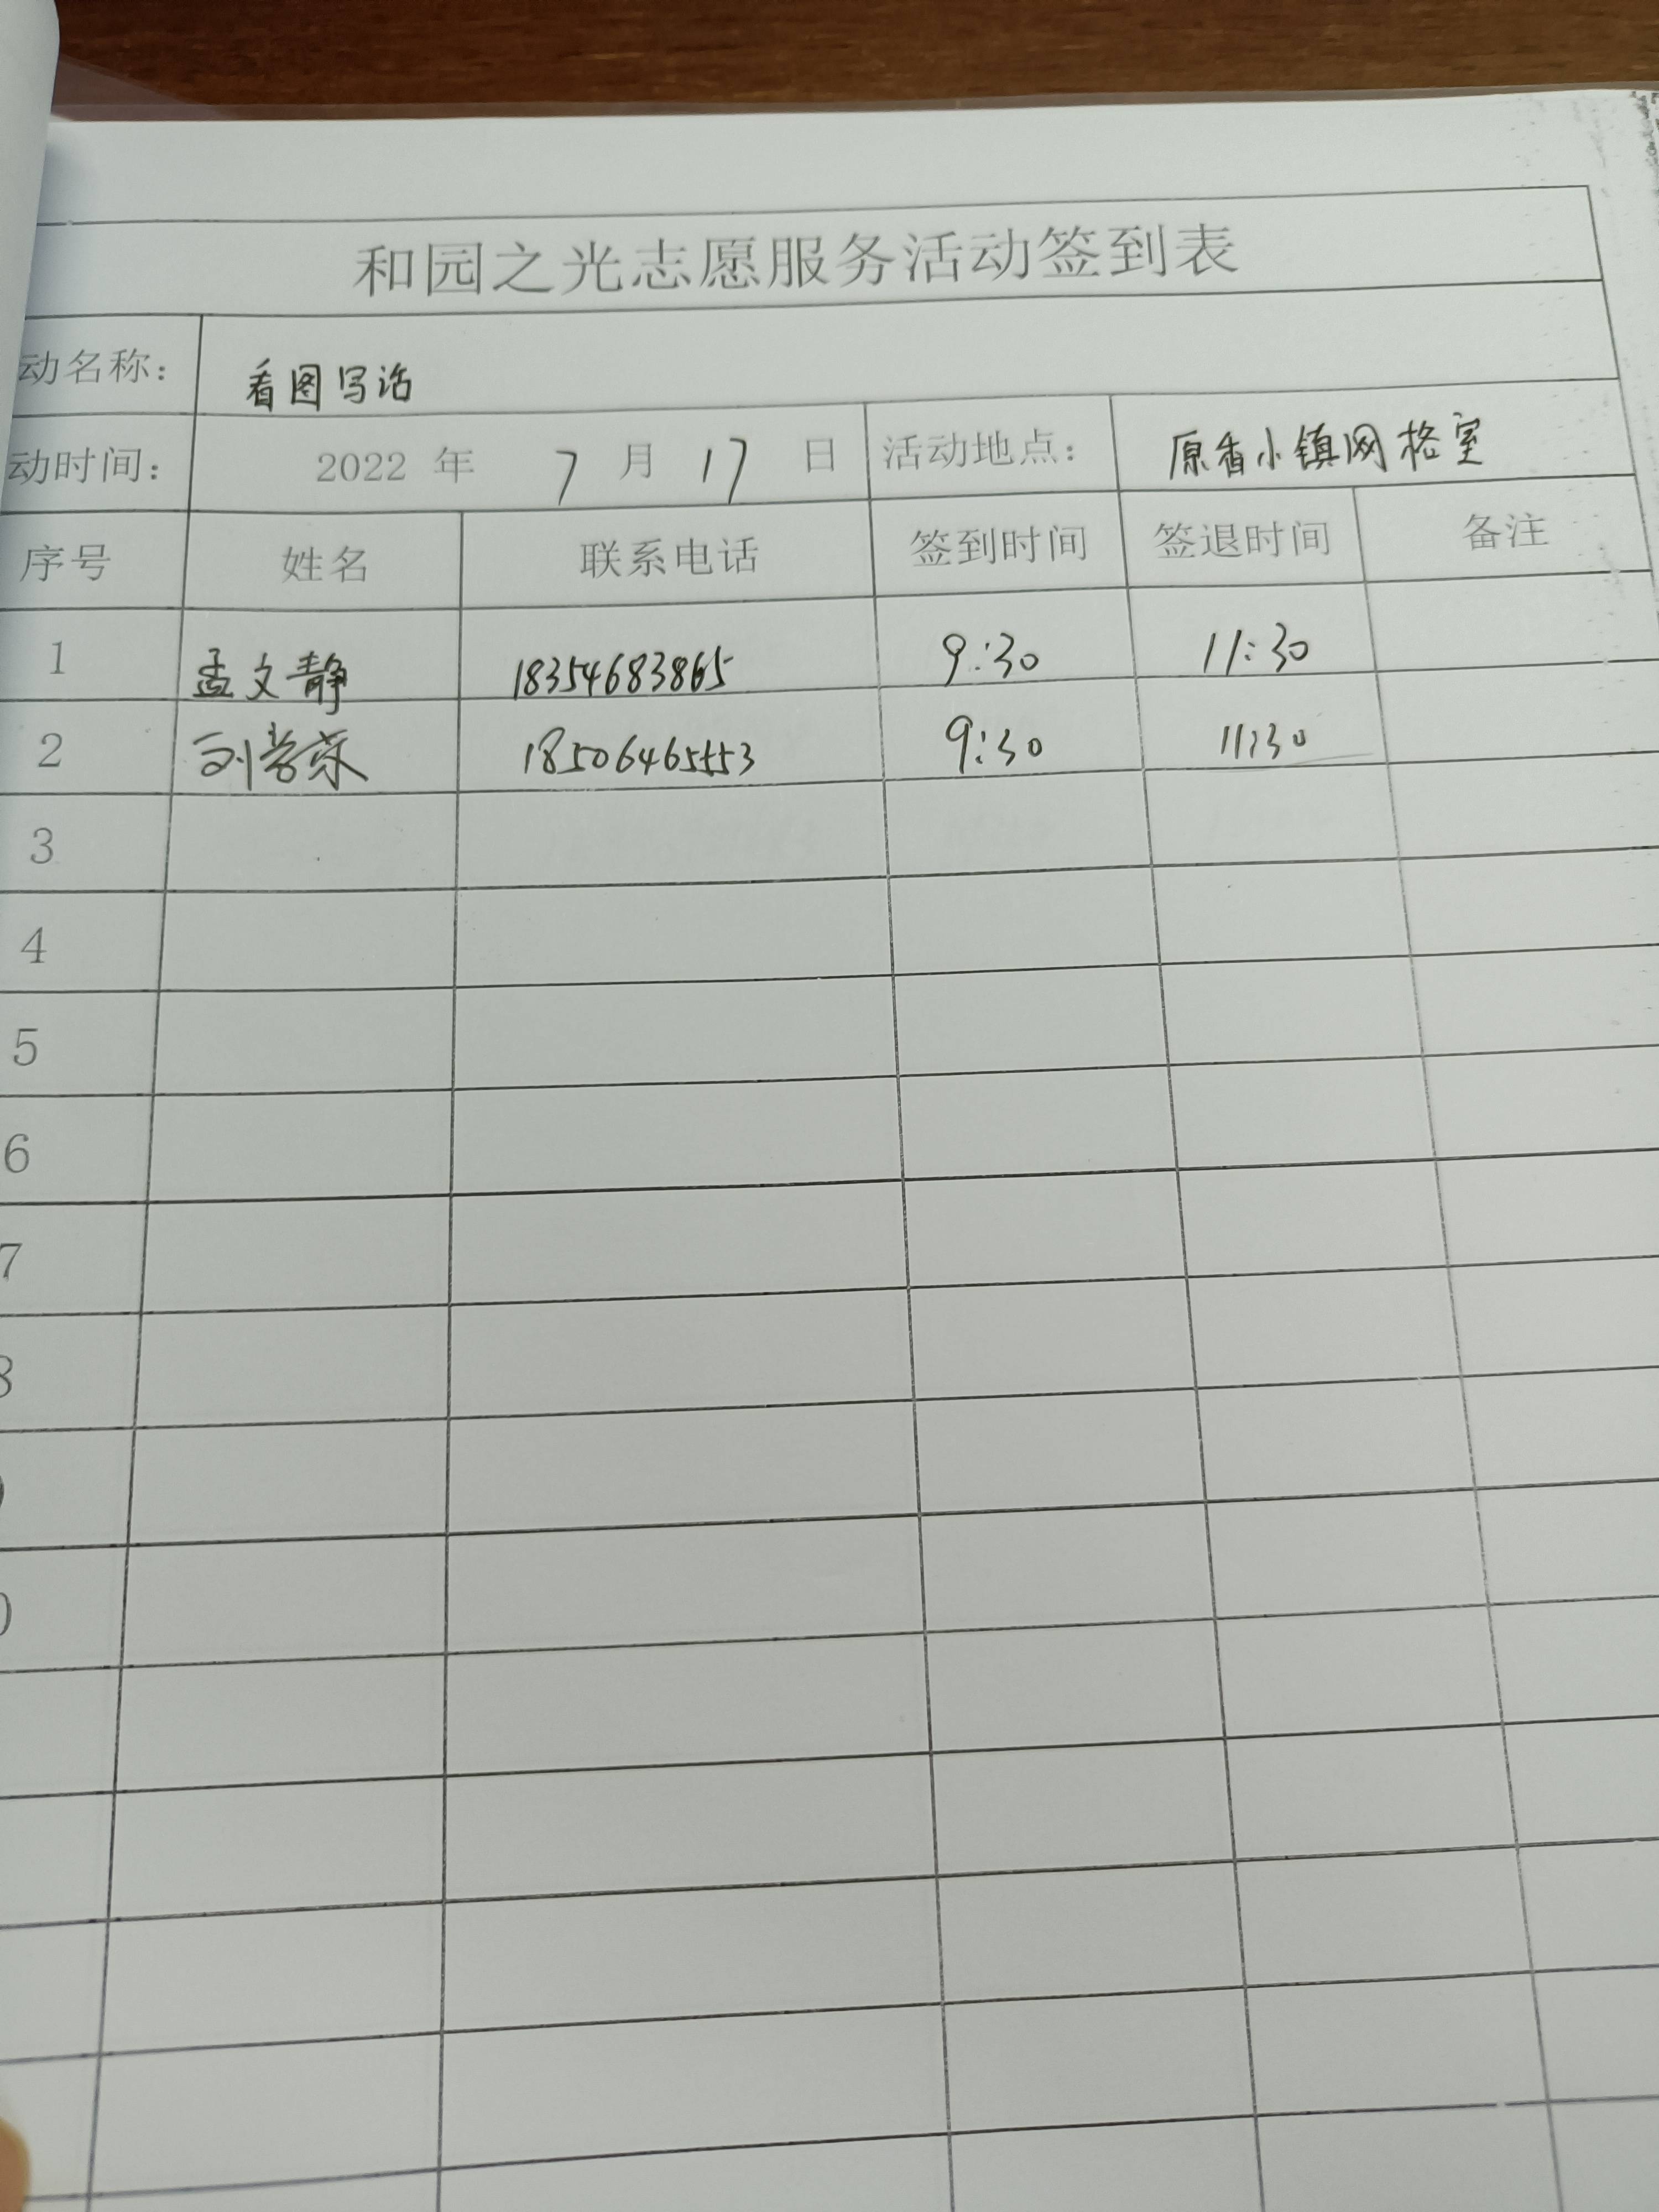 和园之光志愿服务活动签到表
动名称： 看图写话
动时间： 2022 年 7 月 17 日 活动地点： 原香小镇网格室
序号 姓名 联系电话 签到时间 签退时间 备注
1 孟文静 18354683865 9:30 11:30
2 18506465553 9:30 11:30
3
4
5
6
7
8
0